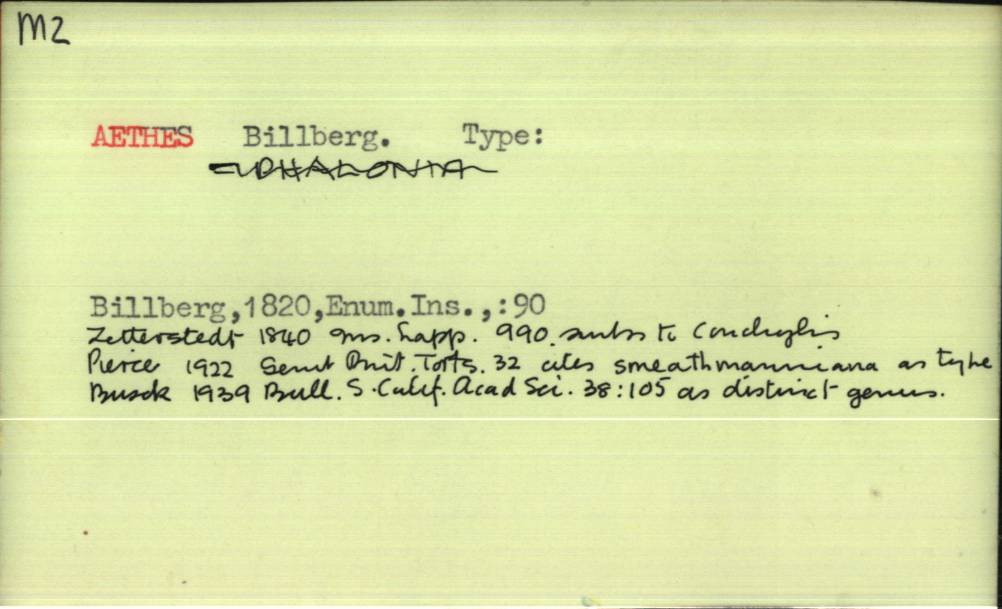 M2
AETHES Billberg. Type:
EUPHALONIA
Billberg,1820,Enum.Ins.,:90
Zetterstedt 1840 Ins. Lapp. 990. subs to Conchylis
Pierce 1922 Genit Brit. Torts. 32 cites smeathmanniana as type
Busck 1939 Bull. S. Calif. Acad Sci. 38:105 as distinct genus.